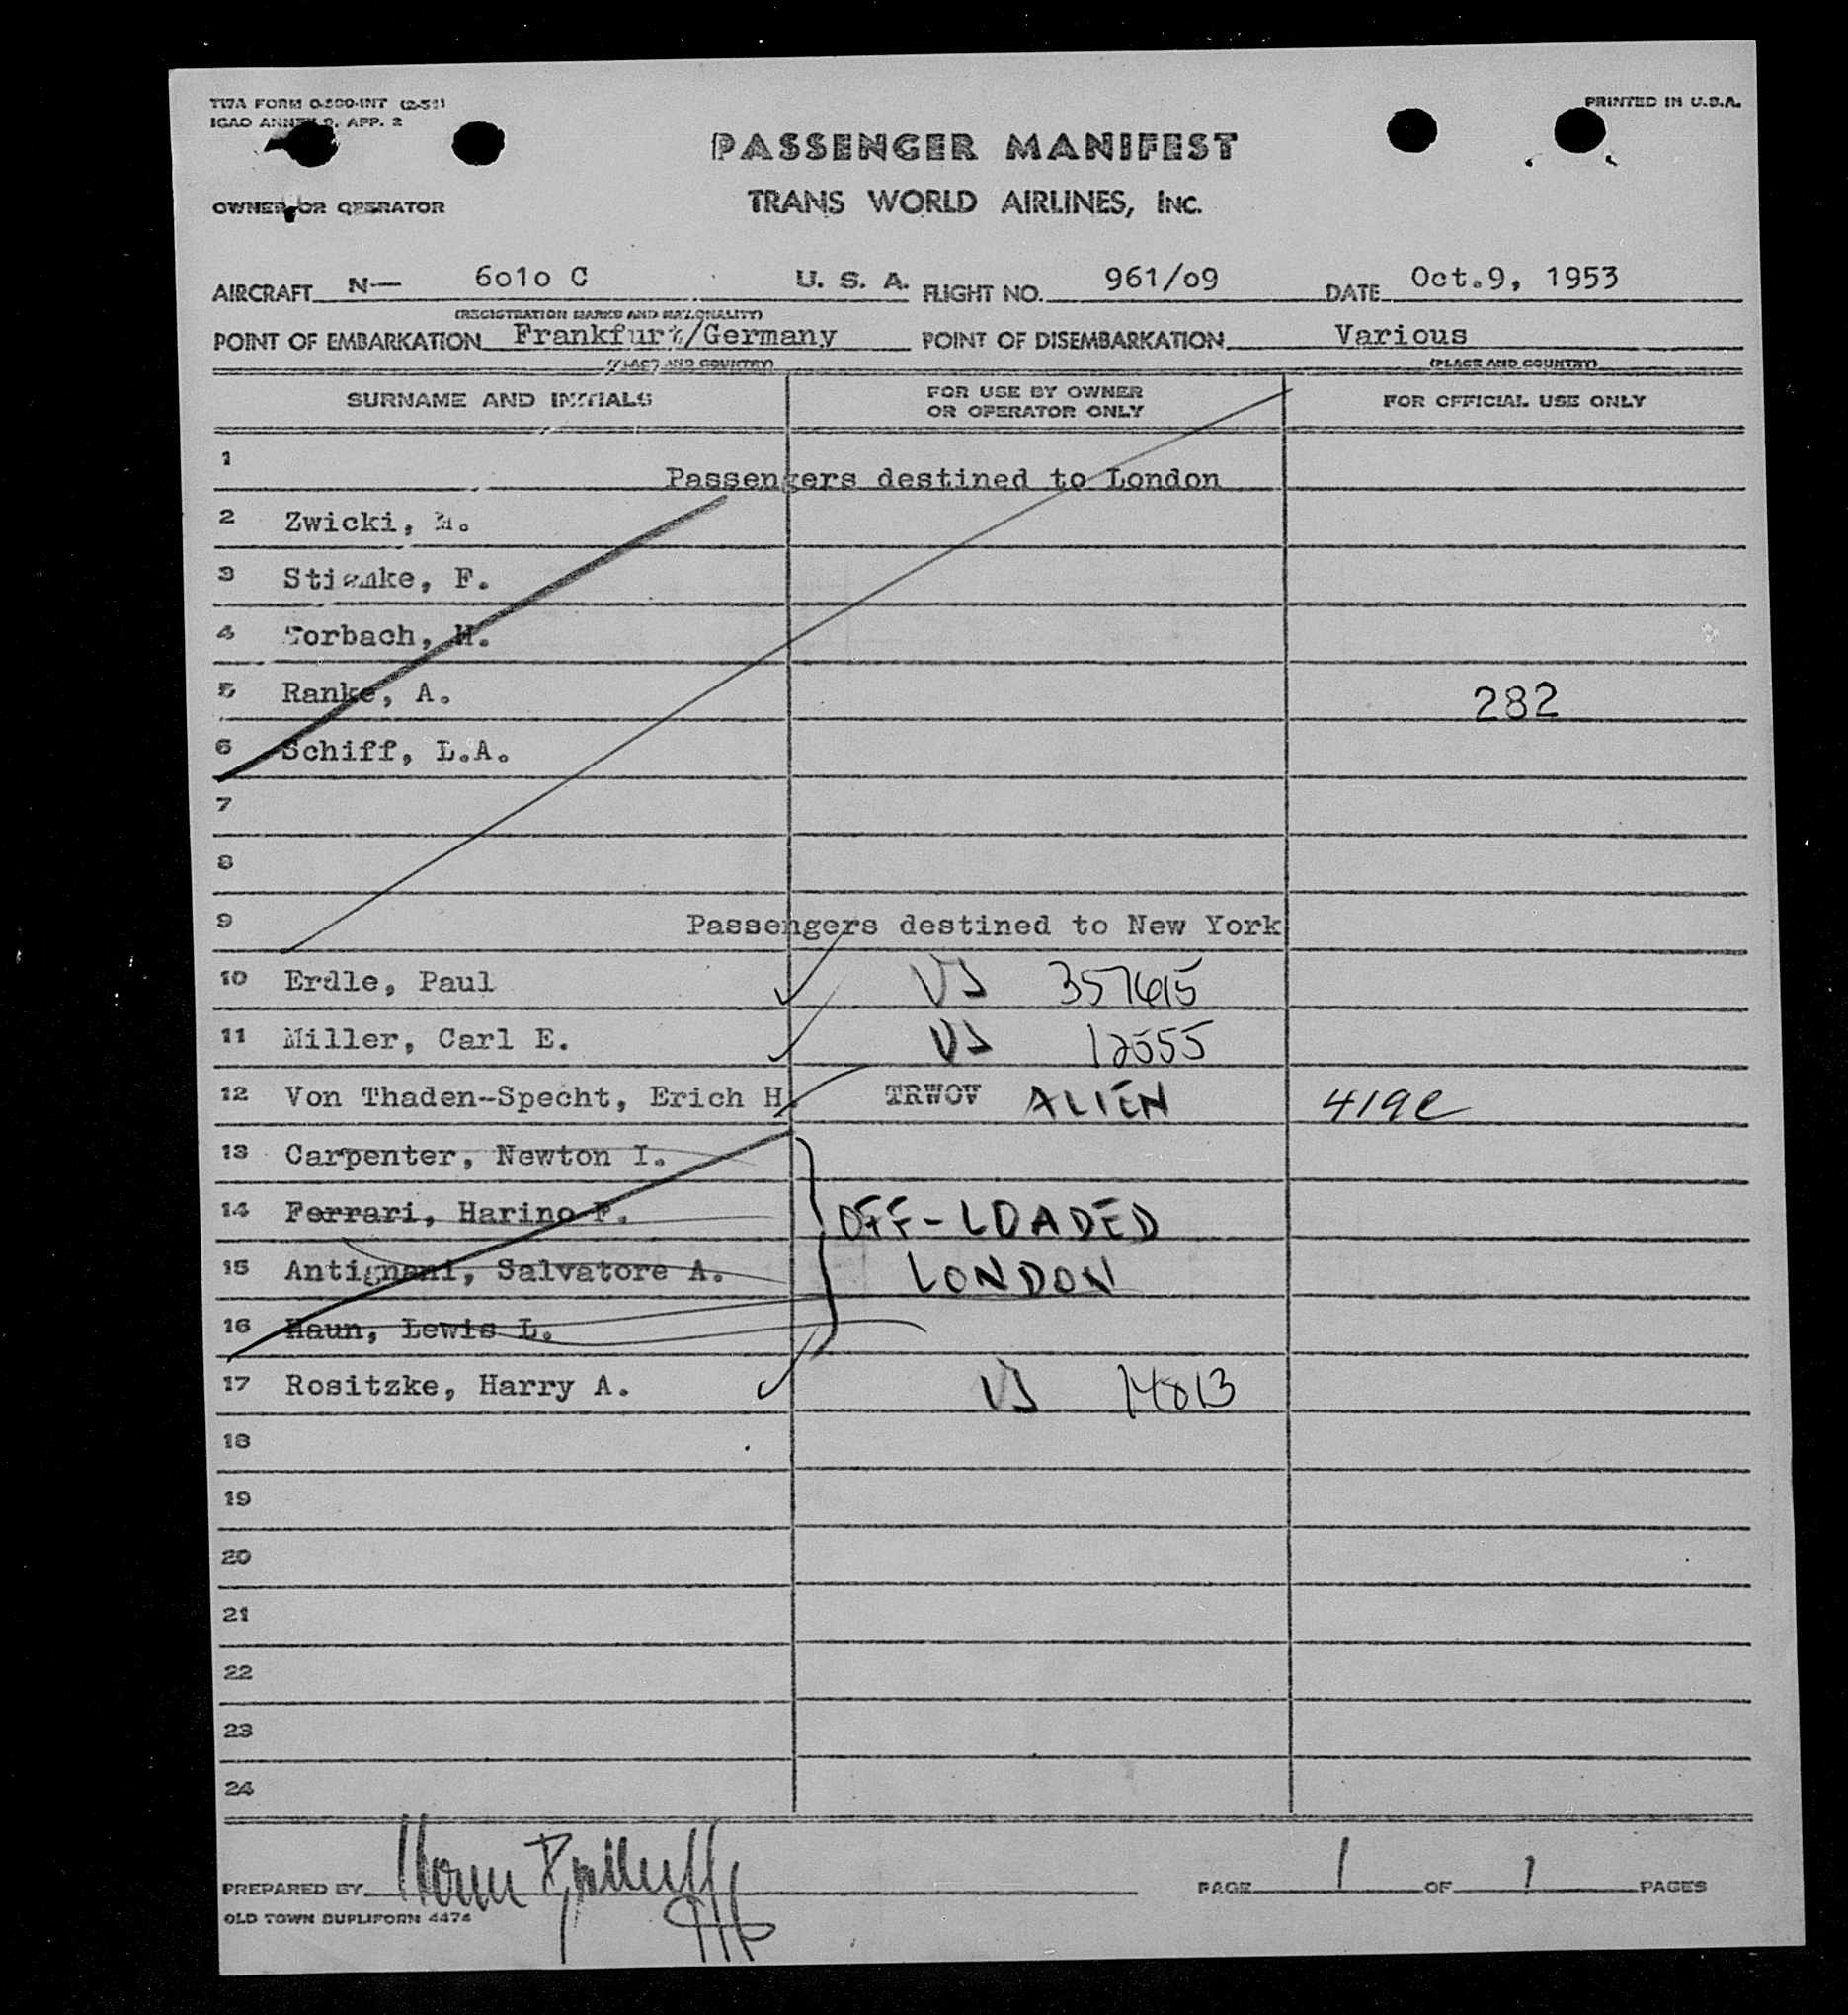 TWA FORM O-500-INT (2-51)
ICAO ANNEX 9, APP. 2
PRINTED IN U.S.A.
PASSENGER MANIFEST
OWNER OR OPERATOR
TRANS WORLD AIRLINES, INC.
AIRCRAFT N— 6o1o C U. S. A. FLIGHT NO. 961/o9 DATE Oct.9, 1953
(REGISTRATION MARKS AND NATIONALITY)
POINT OF EMBARKATION Frankfurt/Germany POINT OF DISEMBARKATION Various
(PLACE AND COUNTRY) (PLACE AND COUNTRY)
SURNAME AND INITIALS FOR USE BY OWNER OR OPERATOR ONLY FOR OFFICIAL USE ONLY
1 Passengers destined to London
2 Zwicki, M.
3 F.
4 H.
5 Ranke, A. 282
6 Schiff, L.A.
7
8
9 Passengers destined to New York
10 Erdle, Paul
11 Miller, Carl E. 12555
12 Von Thaden-Specht, Erich H. TRWOV ALIEN 419e
13 Carpenter, Newton I.
14 Ferrari, Harino F. OFF-LOADED
15 Antignani, Salvatore A. LONDON
16 Haun, Lewis L.
17 Rositzke, Harry A.
18
19
20
21
22
23
24
PREPARED BY PAGE 1 OF 1 PAGES
OLD TOWN DUPLIFORM 4474